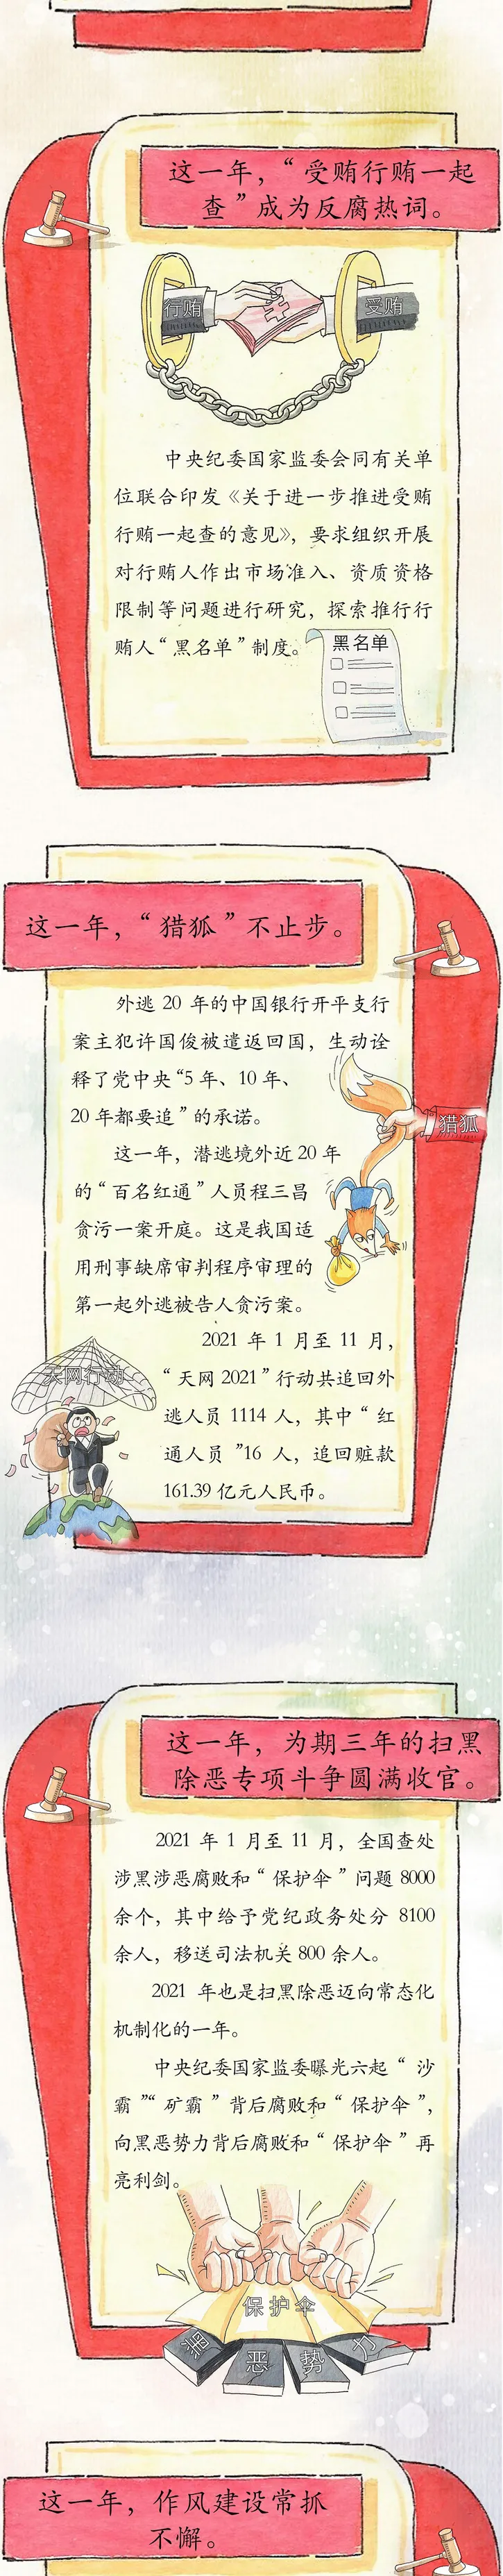 这一年，“受贿行贿一起
查”成为反腐热词。
行贿
受贿
中央纪委国家监委会同有关单
位联合印发《关于进一步推进受贿
行贿一起查的意见》，要求组织开展
对行贿人作出市场准入、资质资格
限制等问题进行研究，探索推行行
贿人“黑名单”制度。
黑名单
这一年，“猎狐”不止步。
外逃 20 年的中国银行开平支行
案主犯许国俊被遣返回国，生动诠
释了党中央“5 年、10 年、
20 年都要追”的承诺。
猎狐
这一年，潜逃境外近 20 年
的“百名红通”人员程三昌
贪污一案开庭。这是我国适
用刑事缺席审判程序审理的
第一起外逃被告人贪污案。
2021 年 1 月至 11 月，
“天网 2021”行动共追回外
逃人员 1114 人，其中“红
通人员”16 人，追回赃款
161.39 亿元人民币。
天网行动
这一年，为期三年的扫黑
除恶专项斗争圆满收官。
2021 年 1 月至 11 月，全国查处
涉黑涉恶腐败和“保护伞”问题 8000
余个，其中给予党纪政务处分 8100
余人，移送司法机关 800 余人。
2021 年也是扫黑除恶迈向常态化
机制化的一年。
中央纪委国家监委曝光六起“沙
霸”“矿霸”背后腐败和“保护伞”，
向黑恶势力背后腐败和“保护伞”再
亮利剑。
保护伞
黑恶势力
这一年，作风建设常抓
不懈。